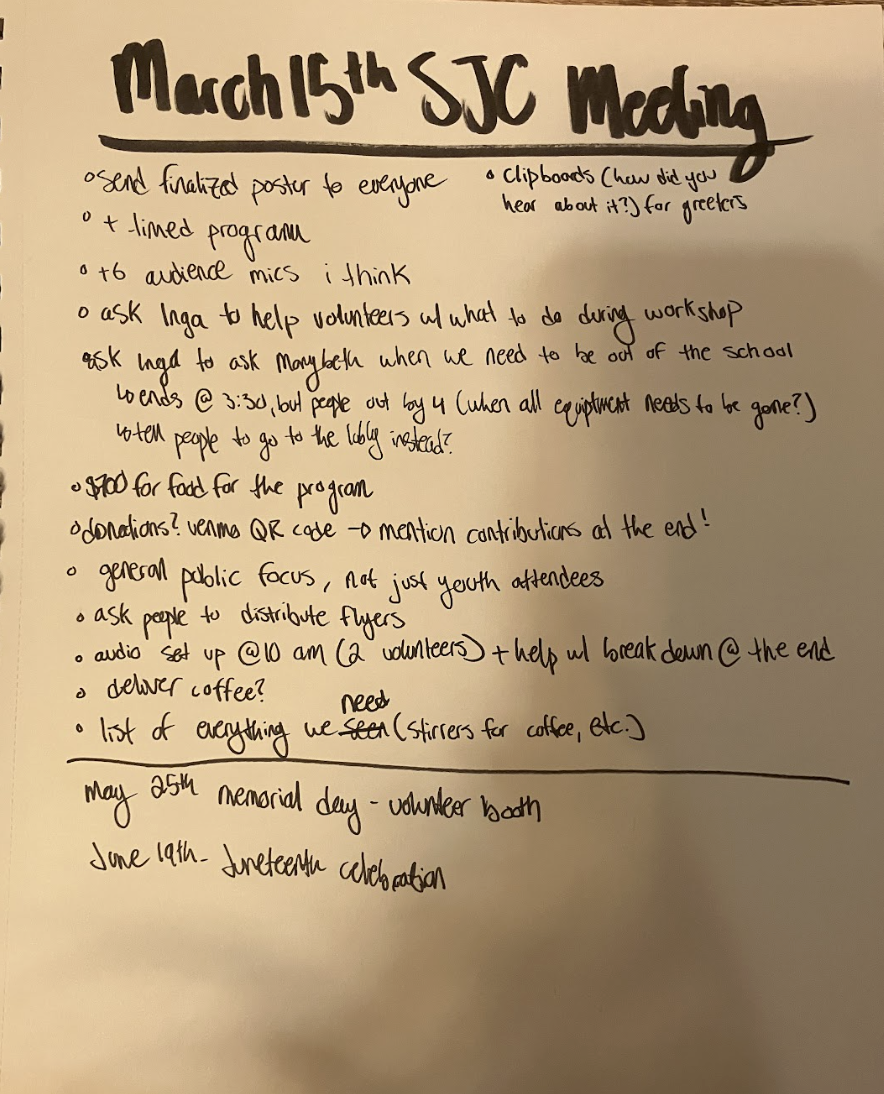 March 15th SJC Meeting
◦ send finalized poster to everyone
◦ + timed program
◦ +6 audience mics i think
◦ ask Inga to help volunteers w/ what to do during workshop
◦ ask Inga to ask Marybeth when we need to be out of the school
↳ ends @ 3:30, but people out by 4 (when all equiptment needs to be gone?)
↳ tell people to go to the lobby instead?
◦ $700 for food for the program
◦ donations? venmo QR code → mention contributions at the end!
◦ general public focus, not just youth attendees
◦ ask people to distribute flyers
◦ audio set up @10 am (2 volunteers) + help w/ break down @ the end
◦ deliver coffee?
◦ list of everything we ~~seen~~ need (stirrers for coffee, etc.)
◦ clipboards (how did you
hear about it?) for greeters
May 25th memorial day - volunteer booth
June 19th - Juneteenth celebration